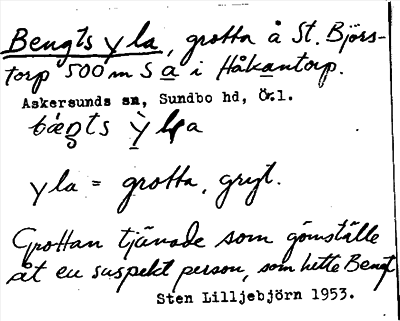 Bengts yla, grotta å St. Björs-
torp 500 m S a i Håkantorp.
Askersunds sn, Sundbo hd, Ör.l.
bæŋts ỳla
yla = grotta, gryt.
Grottan tjänade som gömställe
åt en suspekt person, som hette Bengt
Sten Lilljebjörn 1953.